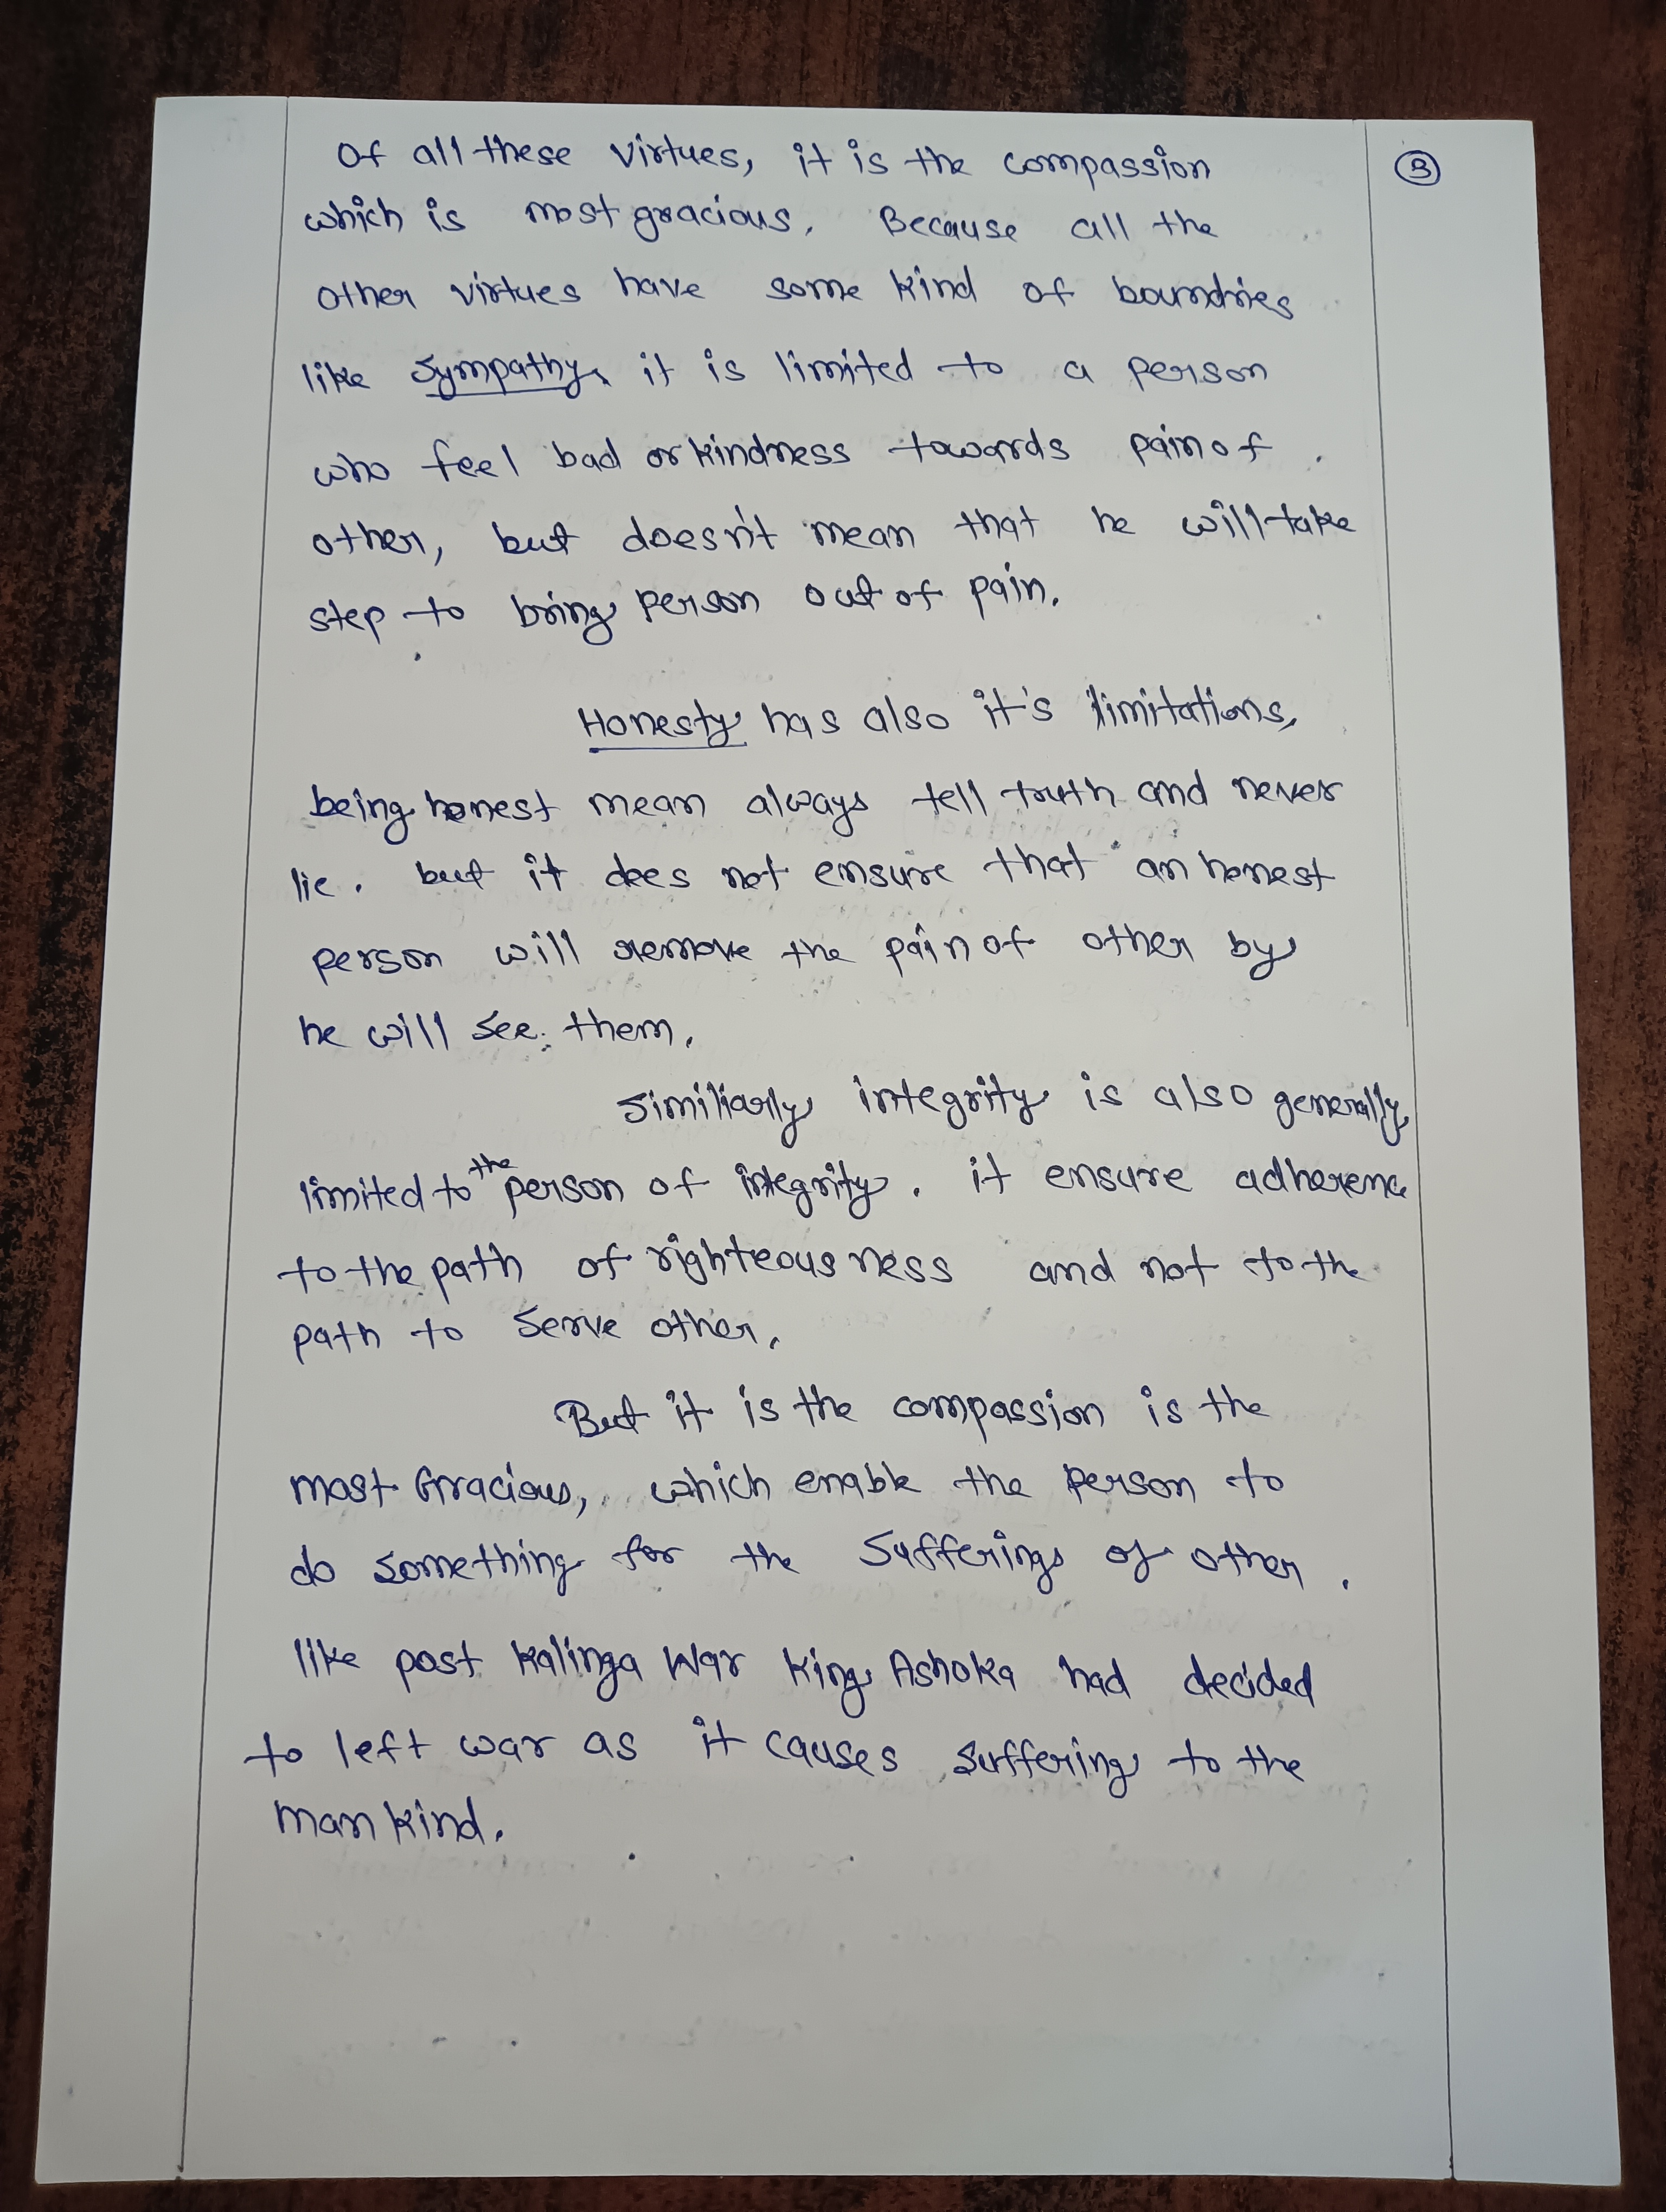 Of all these virtues, it is the compassion
③
which is most gracious. Because all the
other virtues have some kind of boundries
like sympathy, it is limited to a person
who feel bad or kindness towards pain of
other, but doesn't mean that he will take
step to bring person out of pain.
Honesty has also it's limitations,
being honest mean always tell truth and never
lie. but it does not ensure that an honest
person will remove the pain of other by
he will see them.
Similiarly integrity is also generally
limited to the person of integrity. it ensure adherence
to the path of righteousness and not to the
path to serve other.
But it is the compassion is the
most Gracious, which enable the person to
do something for the sufferings of other.
like post Kalinga War King Ashoka had decided
to left war as it causes suffering to the
mankind.